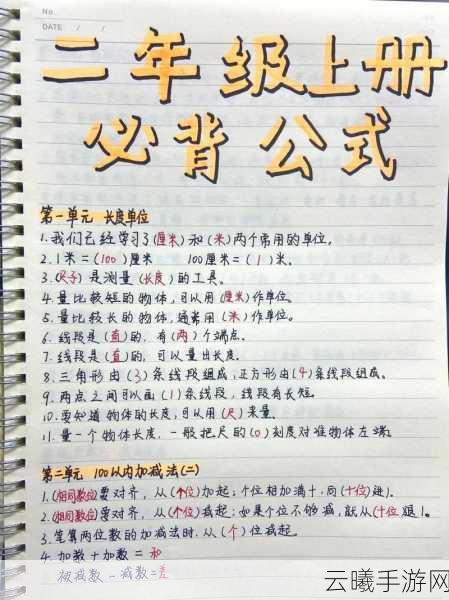 No.
DATE / /
二年级上册
必背公式
第一单元 长度单位
1.我们已经学习了(厘米)和(米)两个常用的单位。
2.1米=(100)厘米 100厘米=(1)米。
3.(尺子)是测量(长度)的工具。
4.量比较短的物体,可以用(厘米)作单位。
5.量比较长的物体,通常用(米)作单位。
6.线段是(直)的,有(两)个端点。
7.线段是(直)的,可以量出长度。
8.三角形由(3)条线段组成,正方形由(4)条线段组成。
9.两点之间可以画(1)条线段,线段有长短。
10.要知道物体的长度,可以用(尺)来量.
11.量一个物体长度,一般把尺的(0)刻度对准物体左端.
第二单元 100以内加减法(二)
1.(相同数位)要对齐,从(个位)加起;个位相加满十,向(十位)进1.
2.(相同数位)要对齐,从(个位)减起;如果个位不够减,就从(十位)退1。
3.笔算两位数的加减法时,从(个)位减起.
4.加数+加数=和
被减数-减数=差
云曦手游网